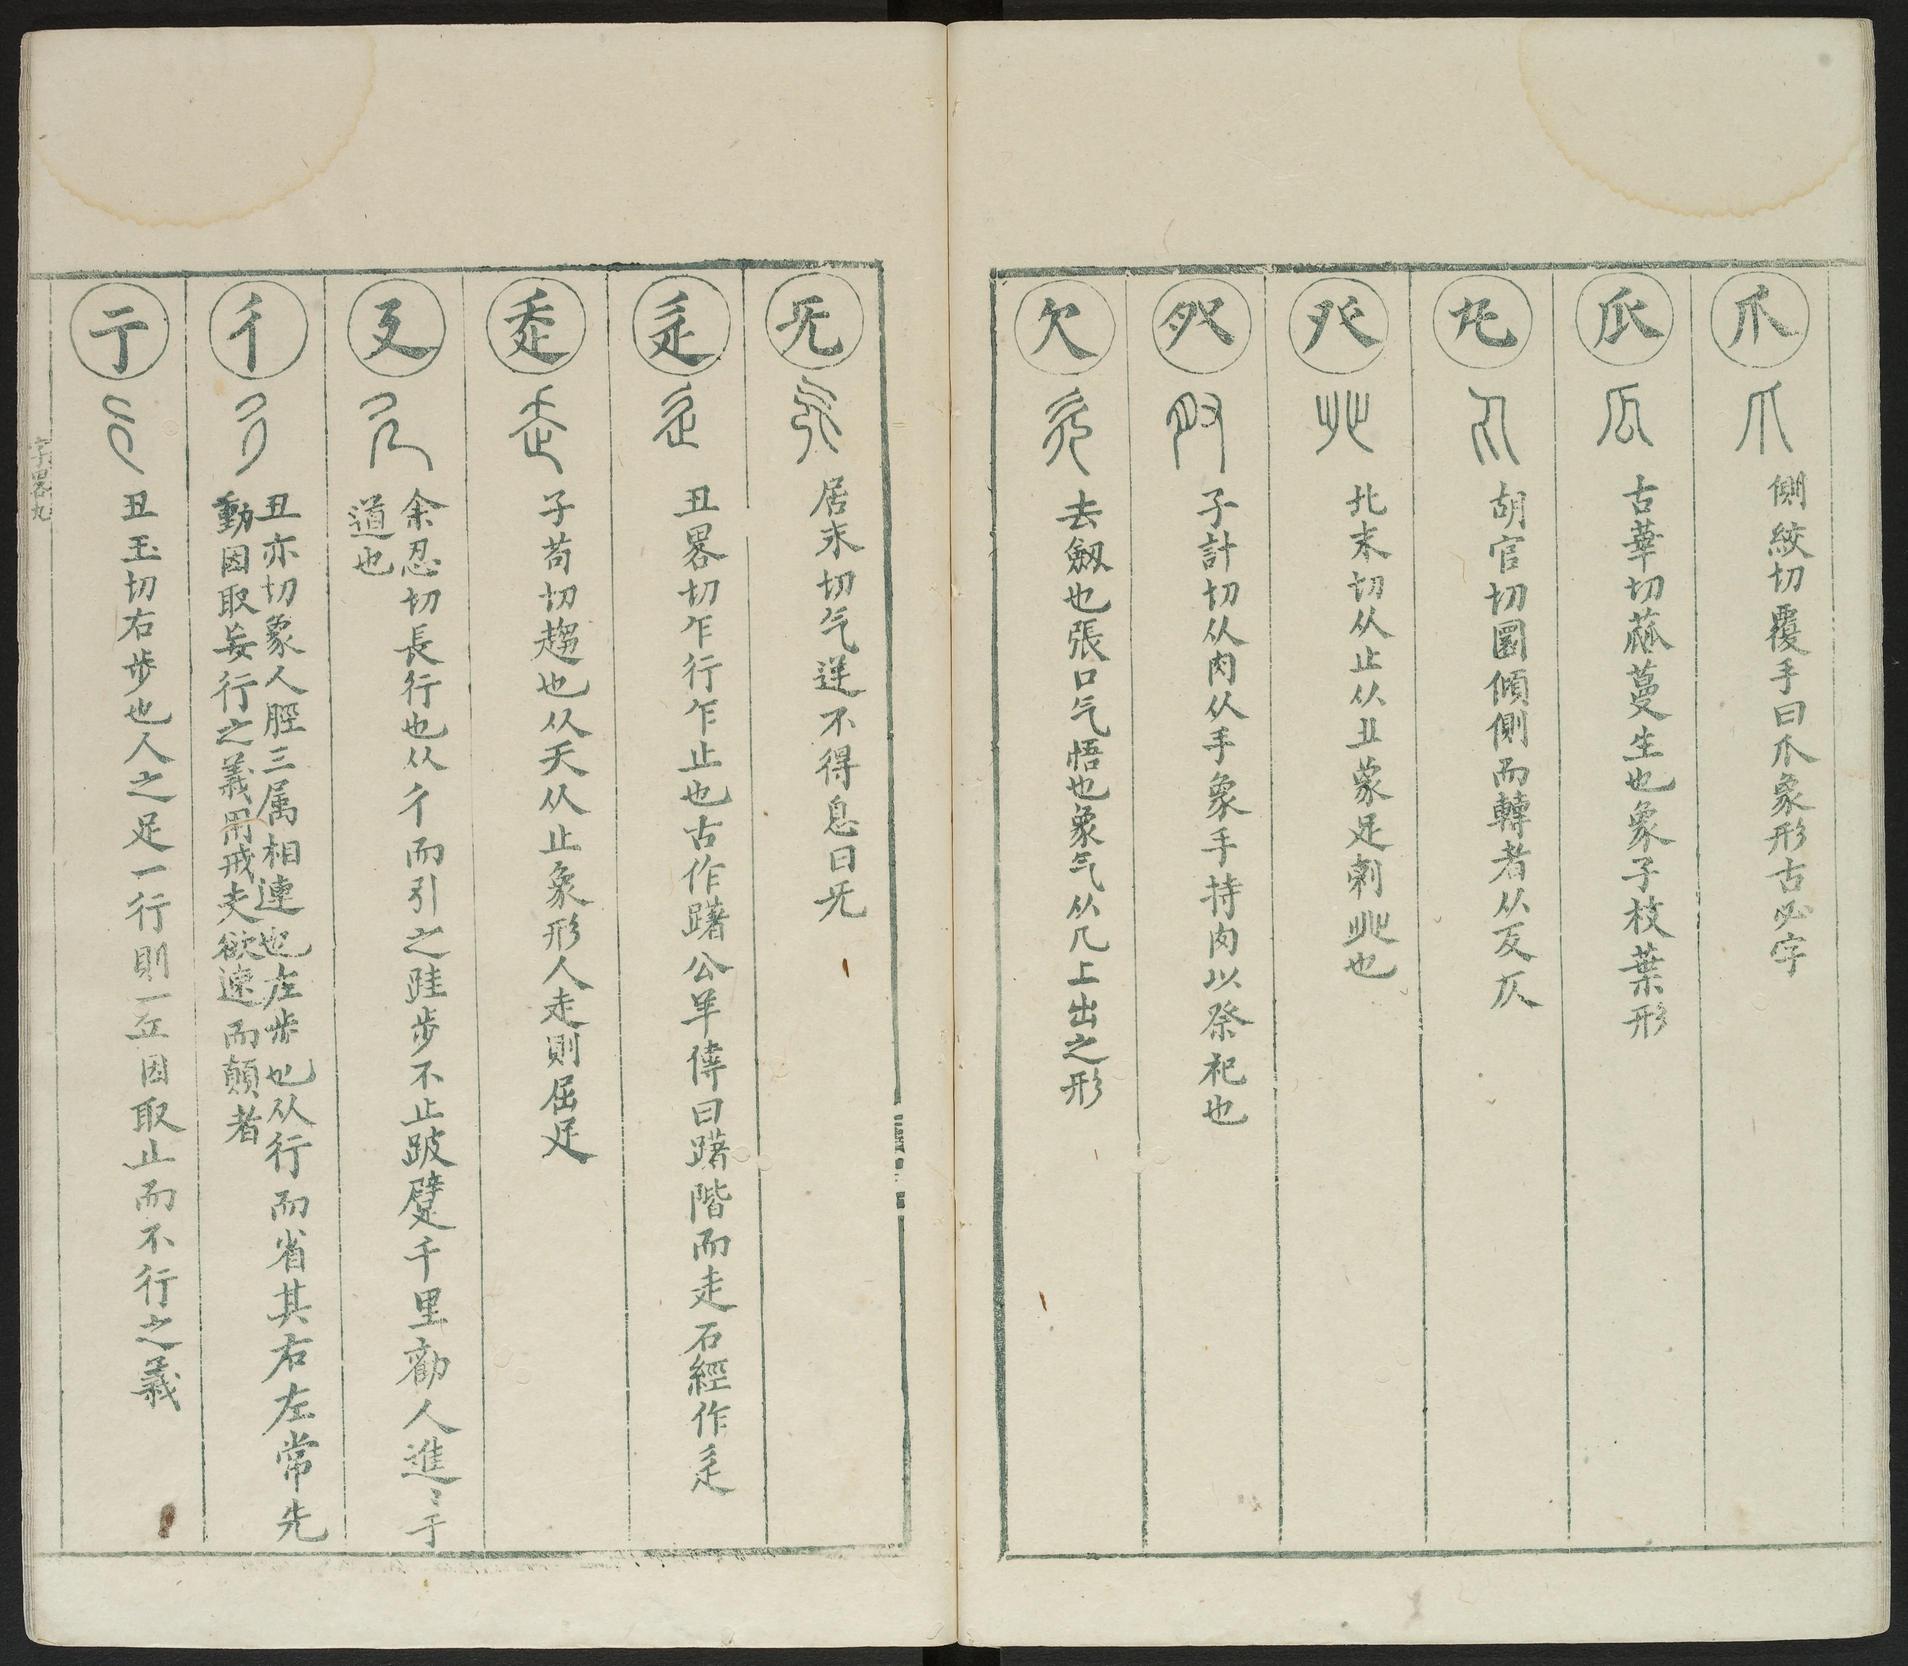 爪 側絞切覆手曰爪象形古必字
瓜 古華切蓏蔓生也象子枝葉形
胡官切圜傾側而轉者从反仄
癶 北末切从止从㐄蒙足剌癶也
子計切从肉从手象手持肉以祭祀也
欠 去劒也張口气悟也象气从几上出之形
旡 居未切气逆不得息曰旡
辵 丑畧切乍行乍止也古作躇公羊傳曰躇階而走石經作辵
子苟切趨也从夭从止象形人走則屈足
廴 余忍切長行也从彳而引之跬步不止跛躄千里勸人進〻于
道也
彳 丑亦切象人脛三属相連也左步也从行而省其右左常先
動因取妄行之義用戒夫欲速而顛者
亍 丑玉切右步也人之足一行則一立因取止而不行之義
字畧九